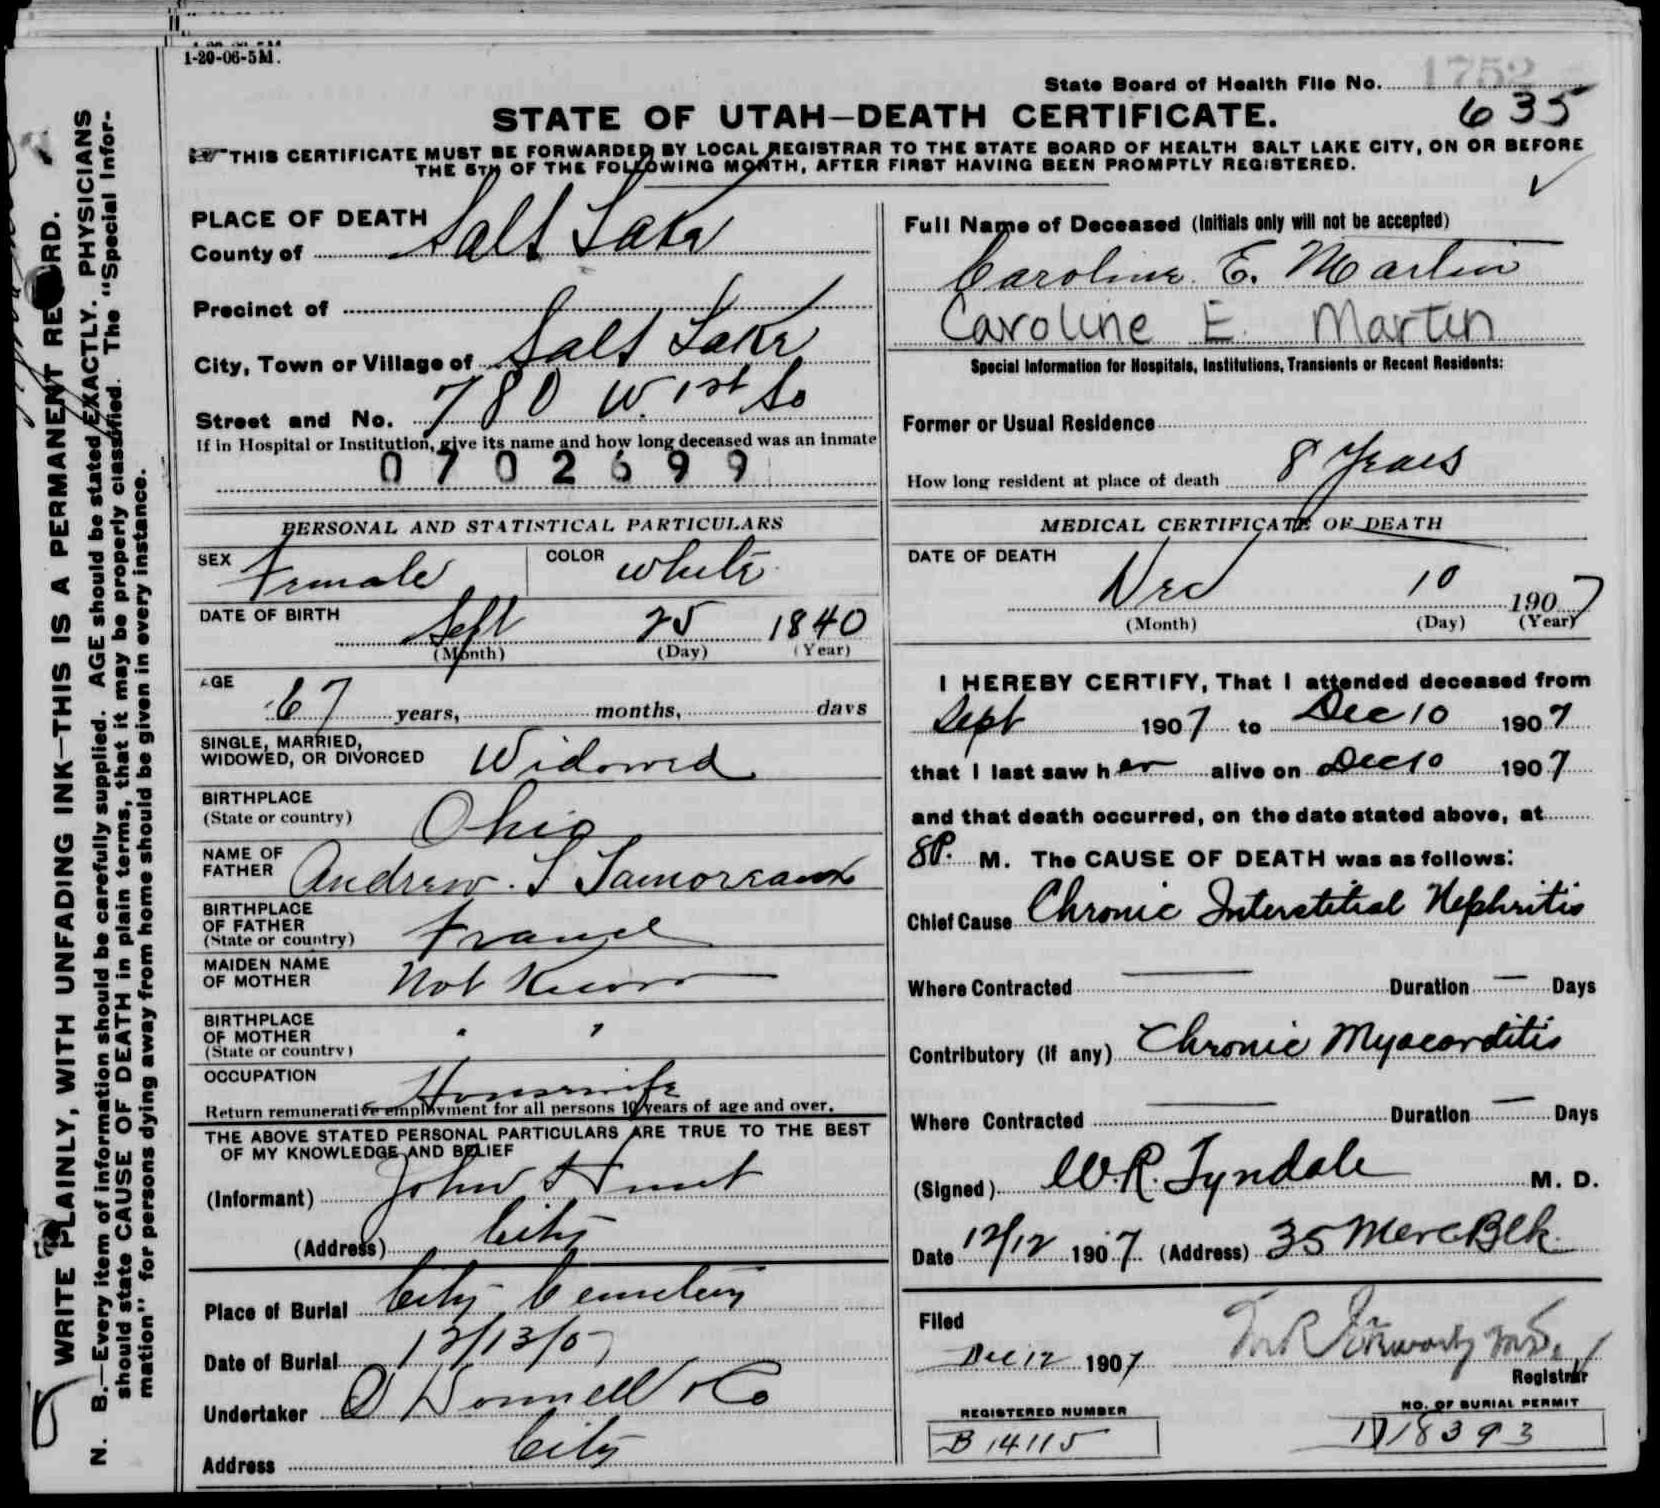 1-20-06-5M.
State Board of Health File No. 1752
635
STATE OF UTAH—DEATH CERTIFICATE.
THIS CERTIFICATE MUST BE FORWARDED BY LOCAL REGISTRAR TO THE STATE BOARD OF HEALTH SALT LAKE CITY, ON OR BEFORE
THE 5TH OF THE FOLLOWING MONTH, AFTER FIRST HAVING BEEN PROMPTLY REGISTERED.
WRITE PLAINLY, WITH UNFADING INK—THIS IS A PERMANENT RECORD.
N. B.—Every item of information should be carefully supplied. AGE should be stated EXACTLY. PHYSICIANS
should state CAUSE OF DEATH in plain terms, that it may be properly classified. The "Special Infor-
mation" for persons dying away from home should be given in every instance.
PLACE OF DEATH
County of Salt Lake
Precinct of
City, Town or Village of Salt Lake
Street and No. 780 W. 1st So
If in Hospital or Institution, give its name and how long deceased was an inmate
0702699
PERSONAL AND STATISTICAL PARTICULARS
SEX Female COLOR White
DATE OF BIRTH Sept 25 1840
(Month) (Day) (Year)
AGE 67 years, months, days
SINGLE, MARRIED,
WIDOWED, OR DIVORCED Widowed
BIRTHPLACE
(State or country) Ohio
NAME OF
FATHER Andrew. S Lamoreaux
BIRTHPLACE
OF FATHER
(State or country) France
MAIDEN NAME
OF MOTHER Not Known
BIRTHPLACE
OF MOTHER
(State or country) " "
OCCUPATION Housewife
Return remunerative employment for all persons 10 years of age and over.
THE ABOVE STATED PERSONAL PARTICULARS ARE TRUE TO THE BEST
OF MY KNOWLEDGE AND BELIEF
(Informant) John
(Address) City
Place of Burial City Cemetery
Date of Burial 12/13/07
Undertaker O'Donnell & Co
Address City
Full Name of Deceased (Initials only will not be accepted)
Caroline E. Martin
Caroline E. Martin
Special Information for Hospitals, Institutions, Transients or Recent Residents:
Former or Usual Residence
How long resident at place of death 8 Years
MEDICAL CERTIFICATE OF DEATH
DATE OF DEATH
Dec 10 1907
(Month) (Day) (Year)
I HEREBY CERTIFY, That I attended deceased from
Sept 1907 to Dec 10 1907
that I last saw her alive on Dec 10 1907
and that death occurred, on the date stated above, at
8P. M. The CAUSE OF DEATH was as follows:
Chief Cause Chronic Interstitial Nephritis
Where Contracted — Duration — Days
Contributory (if any) Chronic Myocarditis
Where Contracted — Duration — Days
(Signed) W.R. Tyndale M. D.
Date 12/12 1907 (Address) 35 Merc Blk.
Filed
Dec 12 1907
Registrar
REGISTERED NUMBER
B 14115
NO. OF BURIAL PERMIT
18393